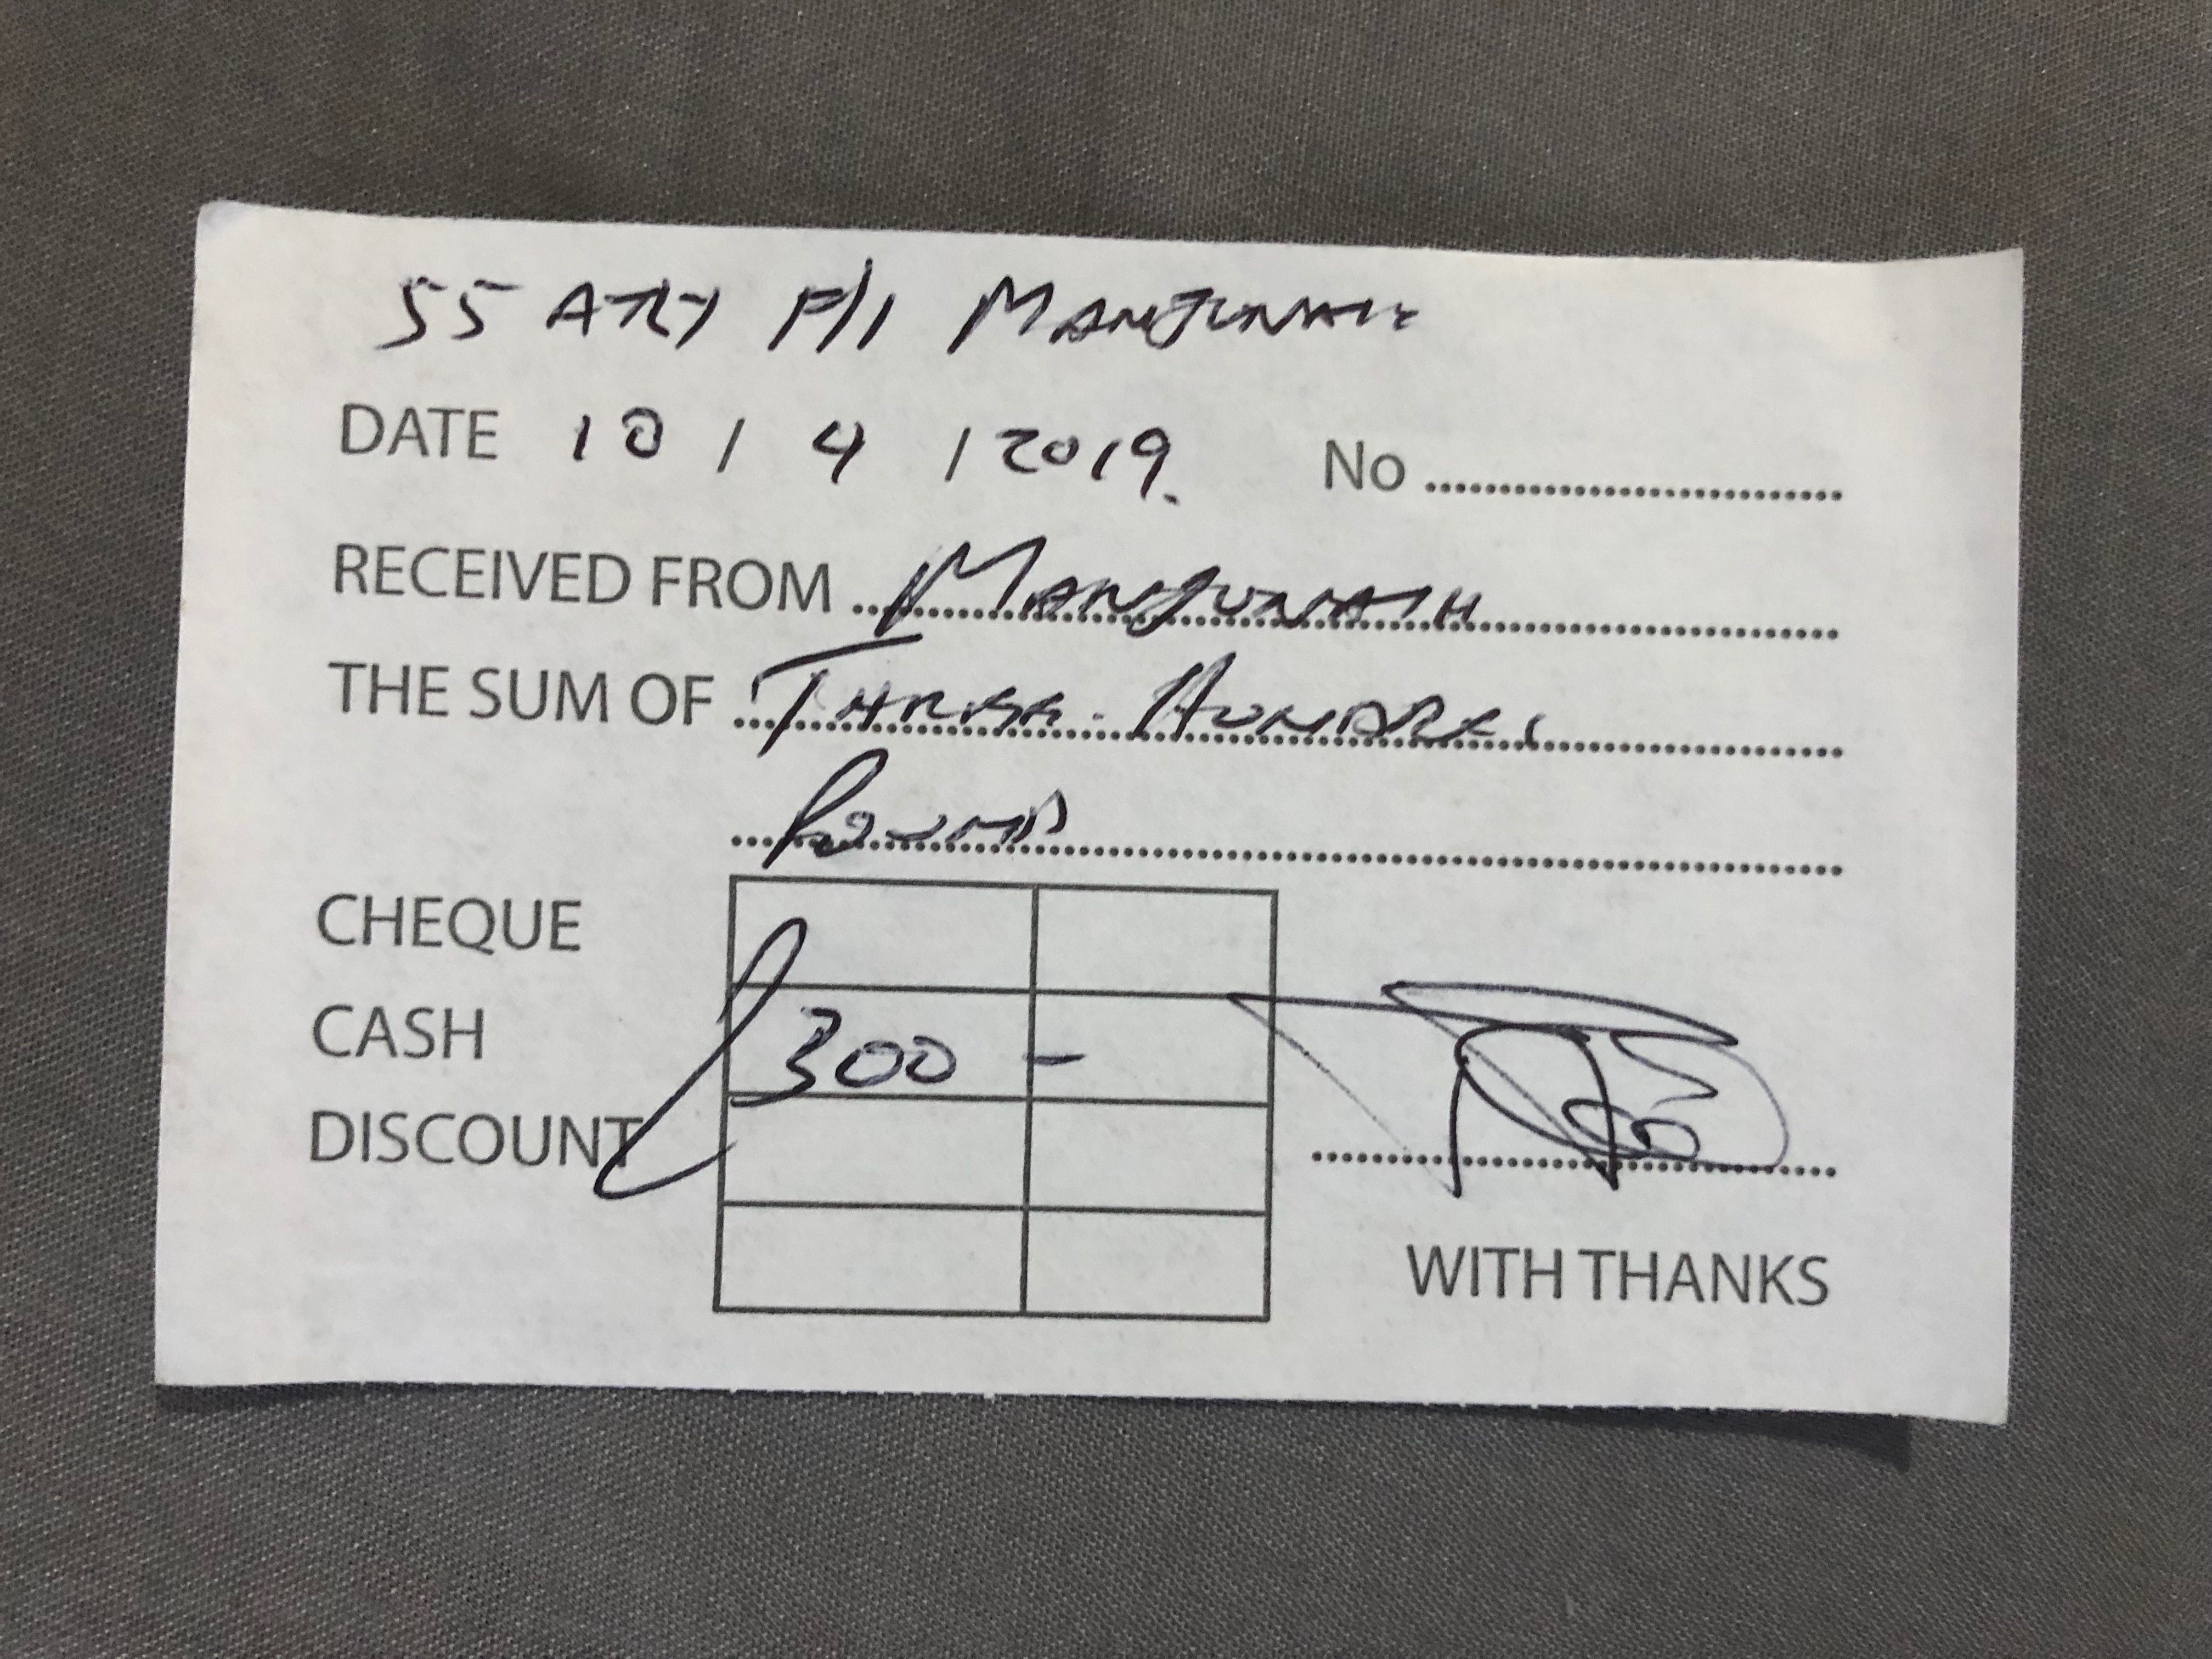 55 P/1 MANJUNATH
DATE 10 / 4 / 2019. No
RECEIVED FROM MANJUNATH
THE SUM OF THREE HUNDRED
POUND
CHEQUE
CASH £300 -
DISCOUNT
WITH THANKS